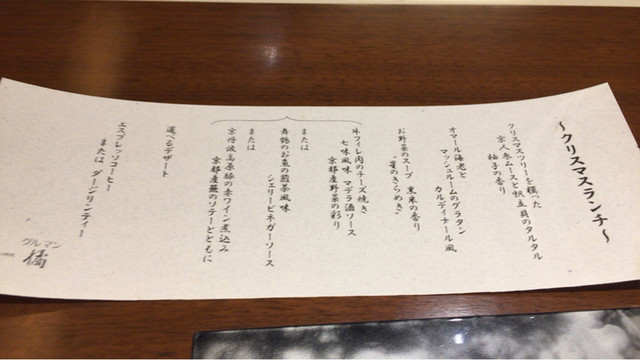 ～クリスマスランチ～
クリスマスツリーを模った
京人参ムースと帆立貝のタルタル
柚子の香り
オマール海老と
マッシュルームのグラタン
カルディナール風
お野菜のスープ 黒米の香り
“星のきらめき”
牛フィレ肉のチーズ焼き
七味風味 マデラ酒ソース
京都産野菜の彩り
または
舞鶴のお魚の煎茶風味
シェリービネガーソース
または
京丹波高原豚の赤ワイン煮込み
京都産蕪のソテーとともに
選べるデザート
エスプレッソコーヒー
または ダージリンティー
グルマン
橘